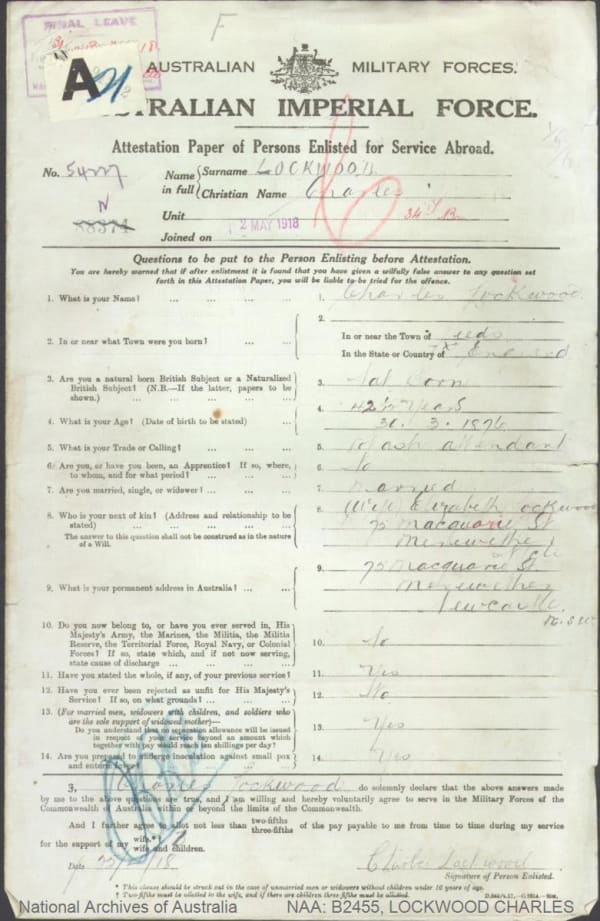 FINAL LEAVE
F
A
AUSTRALIAN MILITARY FORCES.
AUSTRALIAN IMPERIAL FORCE.
Attestation Paper of Persons Enlisted for Service Abroad.
No. Name in full Surname LOCKWOOD
Christian Name Charles
N
88374
Unit 34th B
2 MAY 1918
Joined on
Questions to be put to the Person Enlisting before Attestation.
You are hereby warned that if after enlistment it is found that you have given a wilfully false answer to any question set
forth in this Attestation Paper, you will be liable to be tried for the offence.
1. What is your Name? ... ... ... ... 1. Charles Lockwood
2. In or near what Town were you born? ... ... 2. In or near the Town of Leeds
In the State or Country of England
3. Are you a natural born British Subject or a Naturalized
British Subject? (N.B.—If the latter, papers to be
shown.) ... ... ... ... ... 3. Nat born
4. What is your Age? (Date of birth to be stated) ... 4. 42 Years
30. 3. 1876
5. What is your Trade or Calling? ... ... ... 5. attendant
6. Are you, or have you been, an Apprentice? If so, where,
to whom, and for what period? ... ... ... 6. No
7. Are you married, single, or widower? ... ... ... 7. Married
8. Who is your next of kin? (Address and relationship to be
stated) ... ... ... ... ... 8. (Wife) Elizabeth Lockwood
The answer to this question shall not be construed as in the nature
of a Will. 75 Macquarie St
Merewether
9. What is your permanent address in Australia? ... ... 9. 75 Macquarie St
Merewether
Newcastle.
N.S.W.
10. Do you now belong to, or have you ever served in, His
Majesty's Army, the Marines, the Militia, the Militia
Reserve, the Territorial Force, Royal Navy, or Colonial
Forces? If so, state which, and if not now serving,
state cause of discharge ... ... ... ... 10. No
11. Have you stated the whole, if any, of your previous service? 11. Yes
12. Have you ever been rejected as unfit for His Majesty's
Service? If so, on what grounds? ... ... ... 12. No
13. (For married men, widowers with children, and soldiers who
are the sole support of widowed mother)—
Do you understand that no separation allowance will be issued
in respect of your service beyond an amount which
together with pay would reach ten shillings per day? 13. Yes
14. Are you prepared to undergo inoculation against small pox
and enteric fever? 14. Yes
I, Charles Lockwood do solemnly declare that the above answers made
by me to the above questions are true, and I am willing and hereby voluntarily agree to serve in the Military Forces of the
Commonwealth of Australia within or beyond the limits of the Commonwealth.
And I further agree to allot not less than two-fifths three-fifths of the pay payable to me from time to time during my service
for the support of my wife.* wife and children.†
Date 18 Charles Lockwood
Signature of Person Enlisted.
* This clause should be struck out in the case of unmarried men or widowers without children under 16 years of age.
† Two-fifths must be allotted to the wife, and if there are children three-fifths must be allotted.
National Archives of Australia NAA: B2455, LOCKWOOD CHARLES